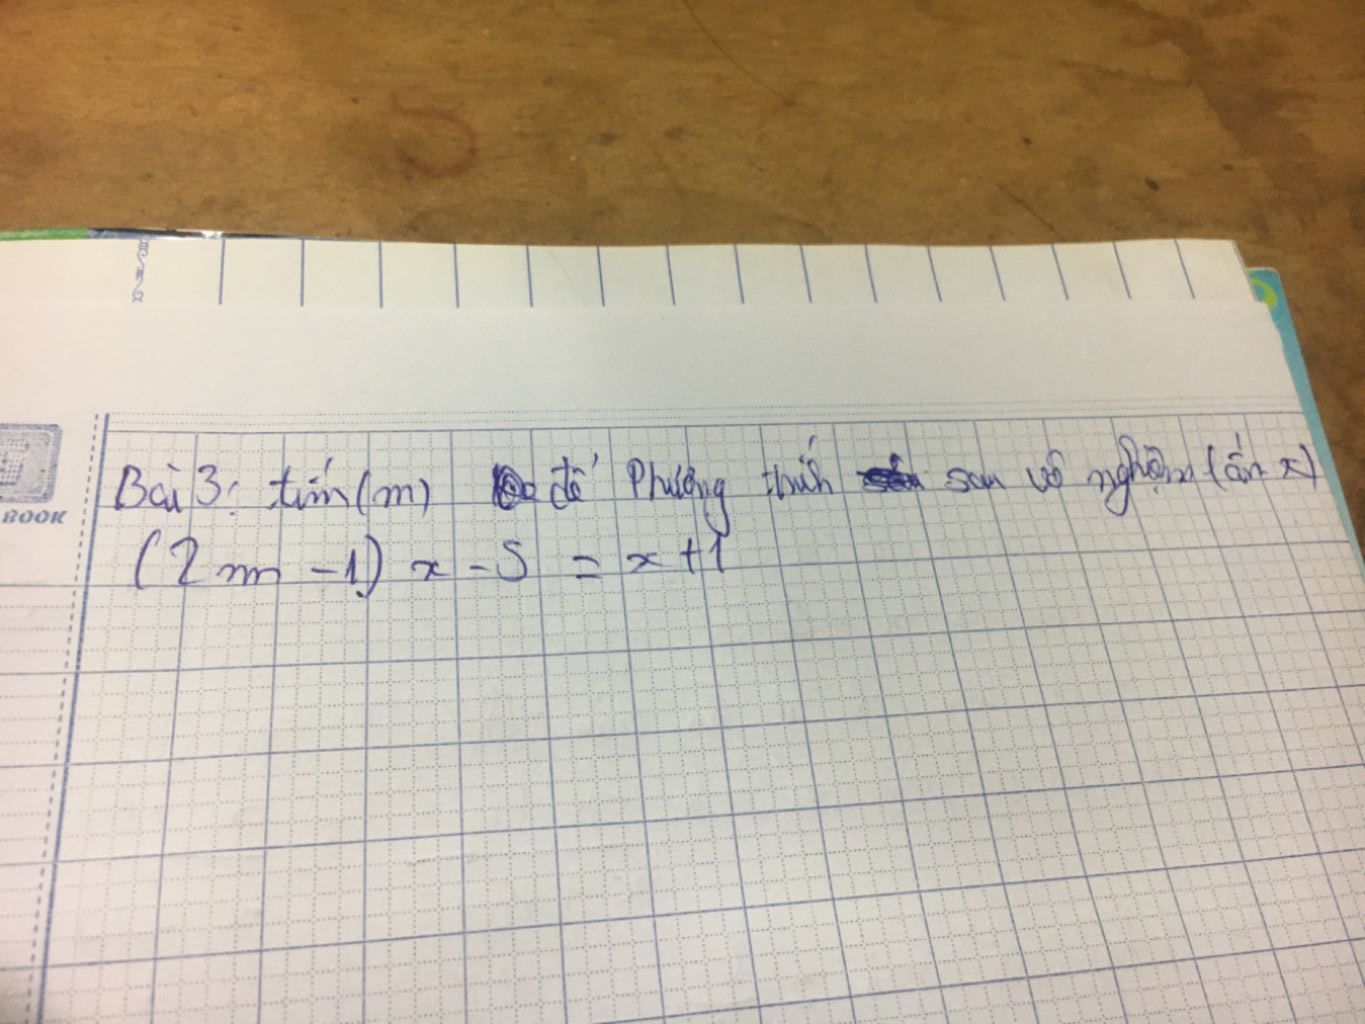 Bài 3: tím (m) để Phương thức sau vô nghiệm (ẩn x)
(2m - 1) x - 5 = x + 1
BOOK